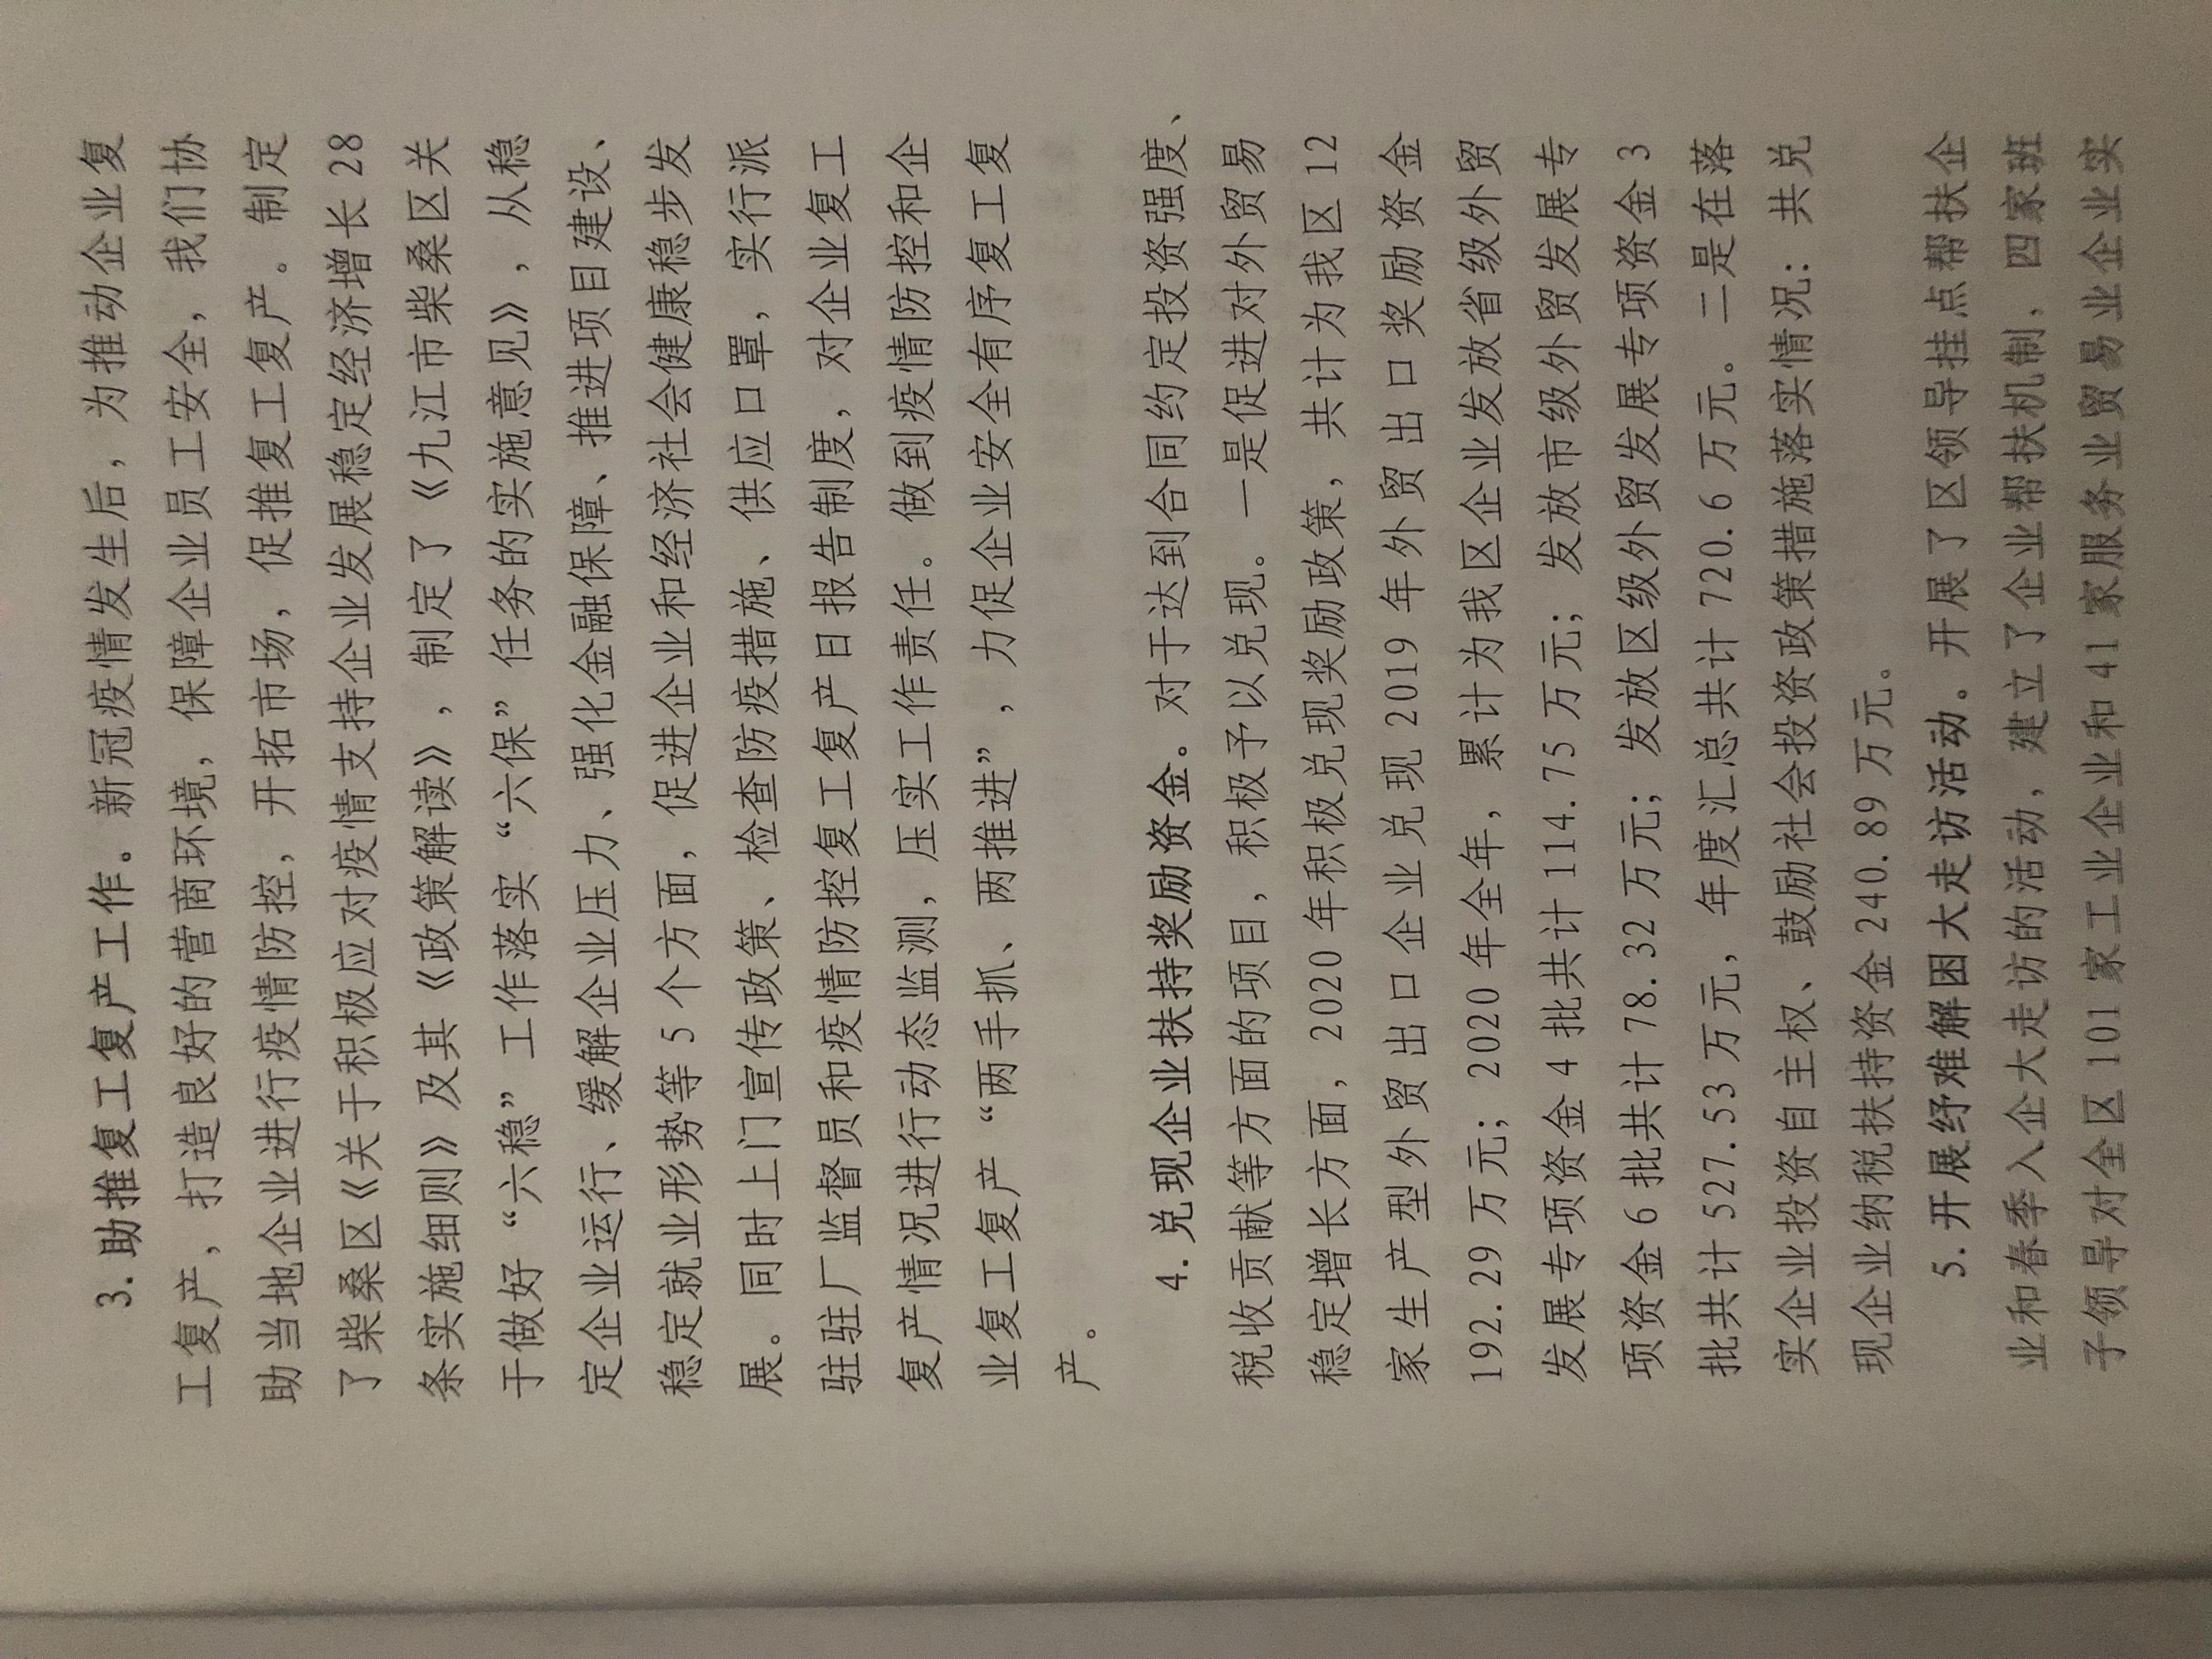 3.助推复工复产工作。新冠疫情发生后，为推动企业复
工复产，打造良好的营商环境，保障企业员工安全，我们协
助当地企业进行疫情防控，开拓市场，促推复工复产。制定
了柴桑区《关于积极应对疫情支持企业发展稳定经济增长28
条实施细则》及其《政策解读》，制定了《九江市柴桑区关
于做好“六稳”工作落实“六保”任务的实施意见》，从稳
定企业运行、缓解企业压力、强化金融保障、推进项目建设、
稳定就业形势等5个方面，促进企业和经济社会健康稳步发
展。同时上门宣传政策、检查防疫措施、供应口罩，实行派
驻驻厂监督员和疫情防控复工复产日报告制度，对企业复工
复产情况进行动态监测，压实工作责任。做到疫情防控和企
业复工复产“两手抓、两推进”，力促企业安全有序复工复
产。
4.兑现企业扶持奖励资金。对于达到合同约定投资强度、
税收贡献等方面的项目，积极予以兑现。一是促进对外贸易
稳定增长方面，2020年积极兑现奖励政策，共计为我区12
家生产型外贸出口企业兑现2019年外贸出口奖励资金
192.29万元；2020年全年，累计为我区企业发放省级外贸
发展专项资金4批共计114.75万元；发放市级外贸发展专
项资金6批共计78.32万元；发放区级外贸发展专项资金3
批共计527.53万元，年度汇总共计720.6万元。二是在落
实企业投资自主权、鼓励社会投资政策措施落实情况：共兑
现企业纳税扶持资金240.89万元。
5.开展纾难解困大走访活动。开展了区领导挂点帮扶企
业和春季入企大走访的活动，建立了企业帮扶机制，四家班
子领导对全区101家工业企业和41家服务业贸易业企业实